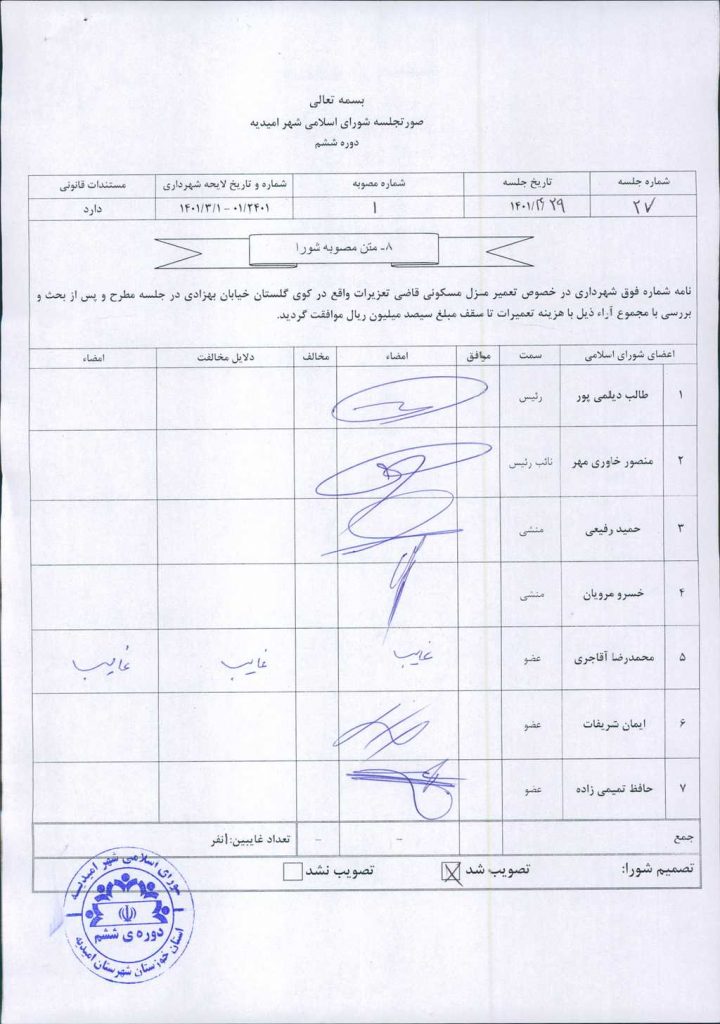 بسمه تعالی
صورتجلسه شورای اسلامی شهر امیدیه
دوره ششم
شماره جلسه تاریخ جلسه شماره مصوبه شماره و تاریخ لایحه شهرداری مستندات قانونی
۲۷ ۱ ۰۱/۲۴۰۱ – ۱۴۰۱/۳/۱ دارد
۸- متن مصوبه شورا
نامه شماره فوق شهرداری در خصوص تعمیر منزل مسکونی قاضی تعزیرات واقع در کوی گلستان خیابان بهزادی در جلسه مطرح و پس از بحث و
بررسی با مجموع آراء ذیل با هزینه تعمیرات تا سقف مبلغ سیصد میلیون ریال موافقت گردید.
اعضای شورای اسلامی سمت موافق امضاء مخالف دلایل مخالفت امضاء
۱ طالب دیلمی پور رئیس
۲ منصور خاوری مهر نائب رئیس
۳ حمید رفیعی منشی
۴ خسرو مرویان منشی
۵ محمدرضا آقاجری عضو غایب غایب غایب
۶ ایمان شریفات عضو
۷ حافظ تمیمی زاده عضو
جمع – – تعداد غایبین:۱نفر
تصمیم شورا: تصویب شد تصویب نشد
شورای اسلامی شهر امیدیه
دوره ی ششم
استان خوزستان شهرستان امیدیه